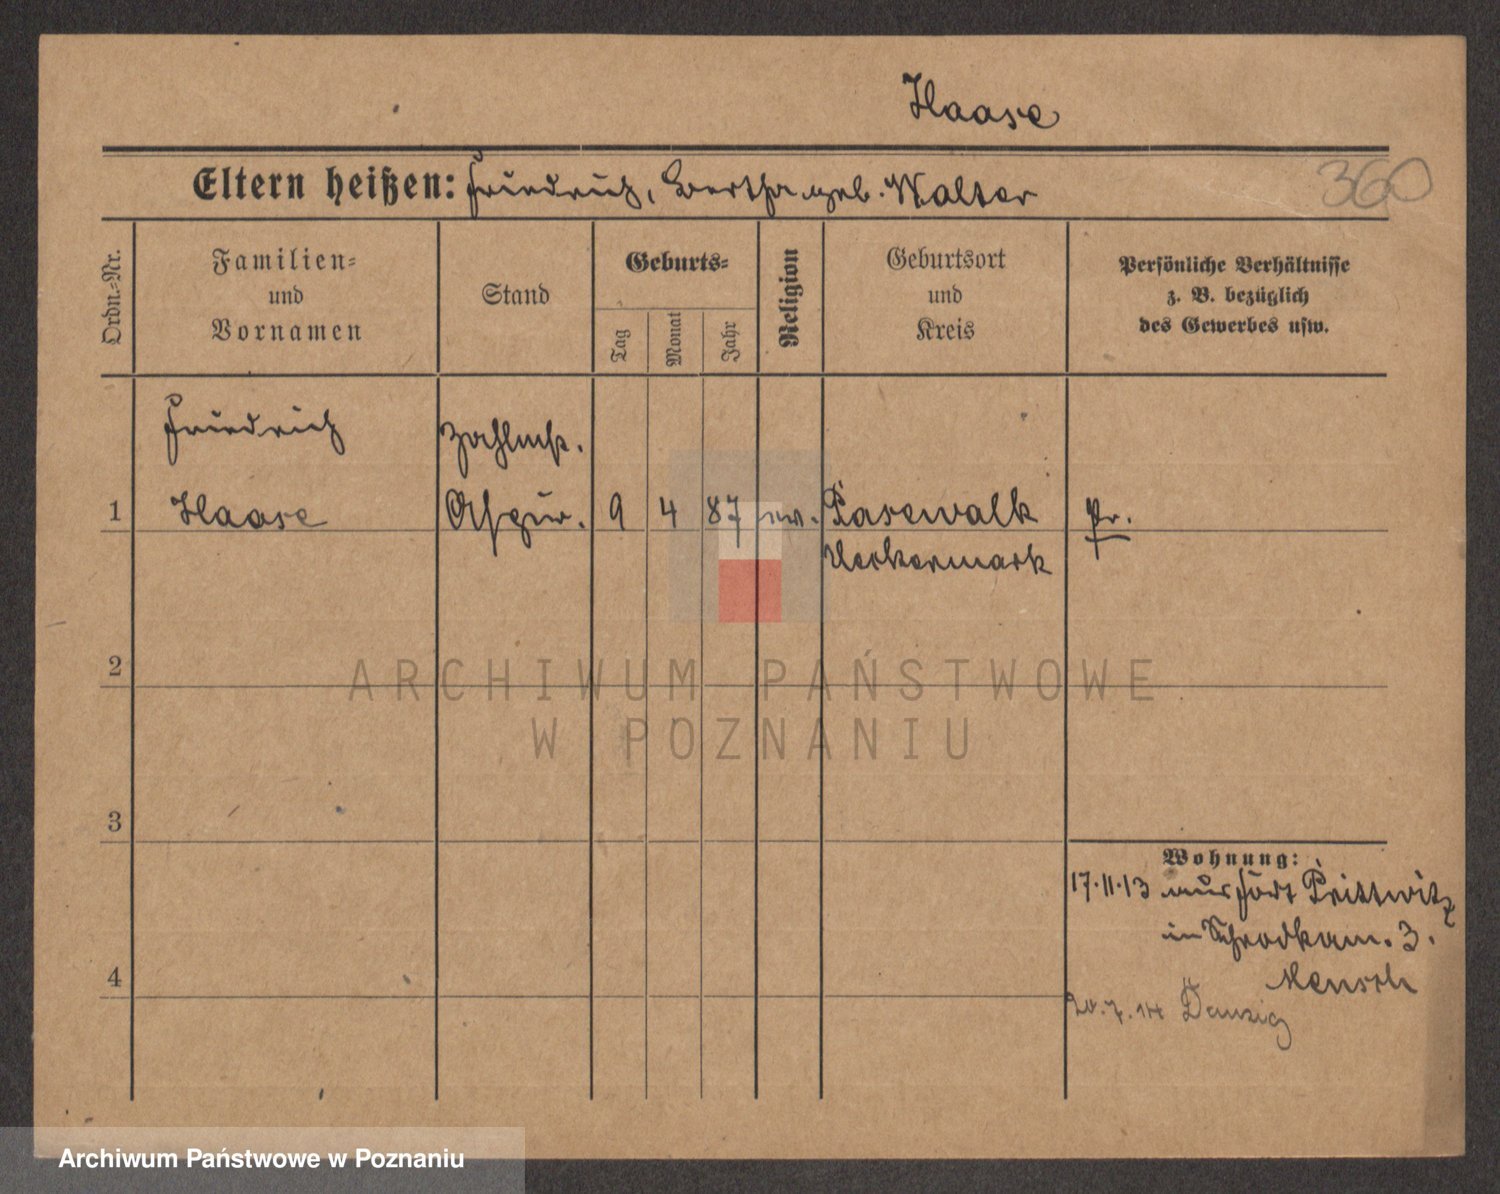 Haase
Eltern heißen: Friedrich, Bertha geb. Walter
360
Ordn.=Nr.
Familien=
und
Vornamen
Stand
Geburts=
Tag
Monat
Jahr
Religion
Geburtsort
und
Kreis
Persönliche Verhältnisse
z. B. bezüglich
des Gewerbes usw.
Friedrich
Zahlmstr.
1 Haase 9 4 87 ev. Pasewalk Pr.
Ueckermark
2
ARCHIWUM PAŃSTWOWE
W POZNANIU
3
Wohnung:
17.11.13 aus Fort Prittwitz
in Schrodkam. 3.
Mensch
4
20.7.14 Danzig
Archiwum Państwowe w Poznaniu